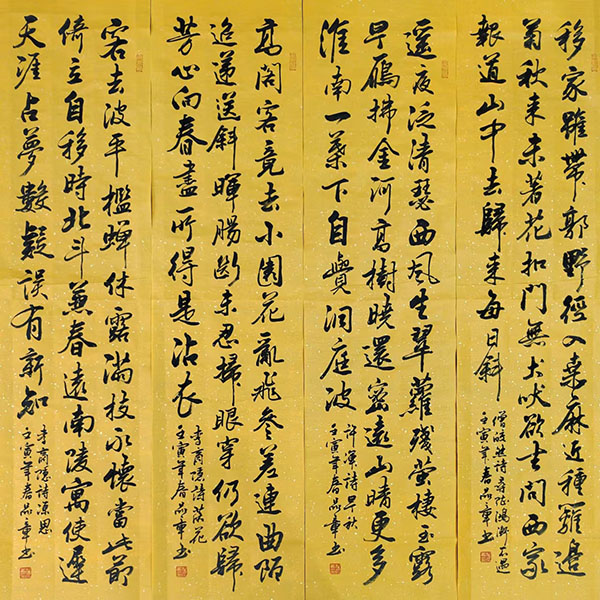 移家雖帶郭野徑入桑麻近種籬邊
菊秋來未著花扣門無犬吠欲去問西家
報道山中去歸來每日斜
僧皎然詩尋陸鴻漸不遇
壬寅年春品章书
遥夜泛清瑟西風生翠蘿殘螢棲玉露
早鴈拂金河高樹曉還密遠山晴更多
淮南一葉下自覺洞庭波
許渾詩早秋
壬寅年春品章书
高閣客竟去小園花亂飛參差連曲陌
迢遞送斜暉腸斷未忍掃眼穿仍欲歸
芳心向春盡所得是沾衣
李商隱詩落花
壬寅年春品章书
客去波平檻蟬休露滿枝永懷當此節
倚立自移時北斗兼春遠南陵寓使遲
天涯占夢數疑誤有新知
李商隱詩凉思
壬寅年春品章书